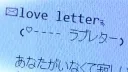 ✉love letter。
(♡---- ラブレター)
あなたがいなくて寂し